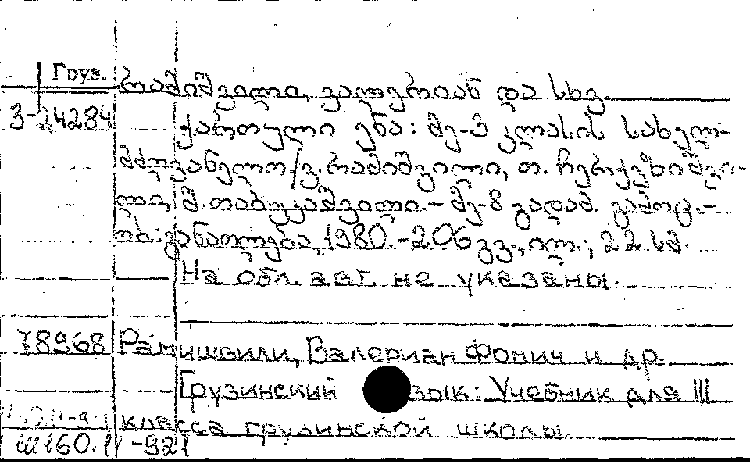 Груз.
რამიშვილი, ვალერიან და სხვ.
З-24284 ქართული ენა: მე-3 კლასის სახელ-
მძღვანელო/ვ. რამიშვილი, თ. ჩერქეზიშვი-
ლი, მ. თაბუკაშვილი.- მე-8 გადამ. გამოც.-
თბ.: განათლება, 1980.-206 გვ., ილ.; 22 სმ.
На обл. авт. не указаны.
78968 Рамишвили, Валериан Фомич и др.
Грузинский язык: Учебник для III
класса грузинской школы.
Ш160.11-921